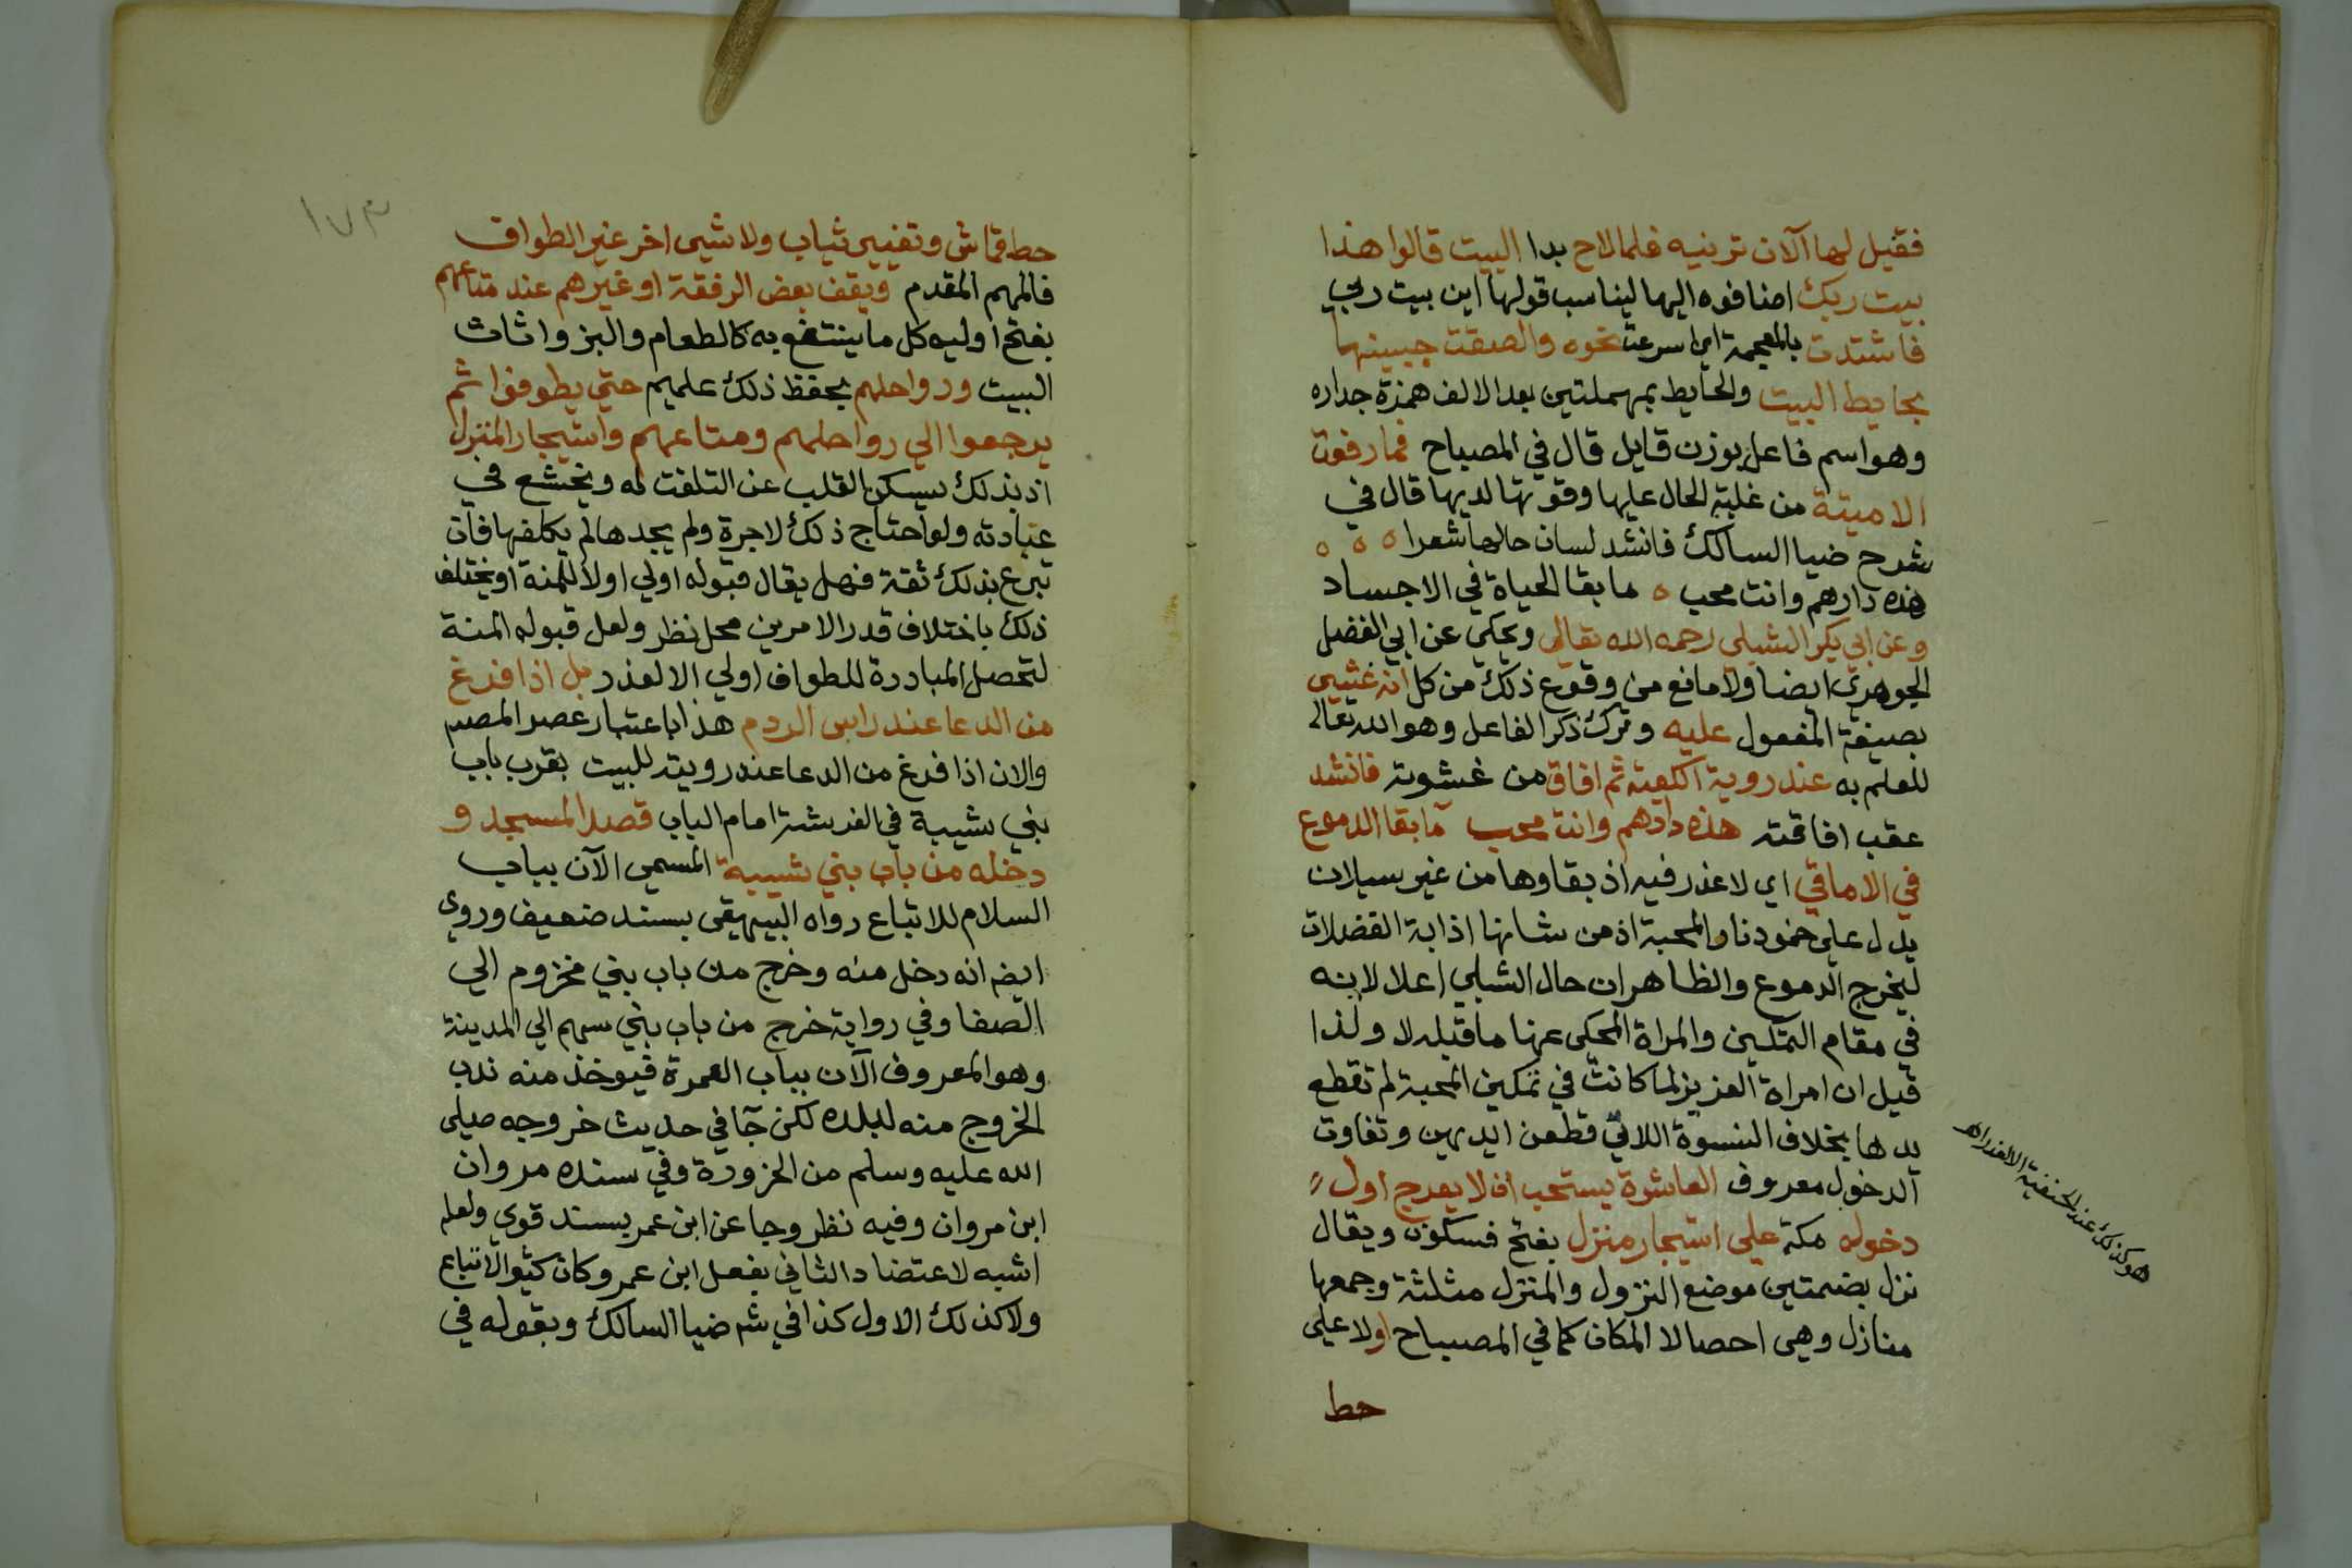 فقيل لها الآن ترينيه فلما لاح بدا البيت قالوا هذا
بيت ربك اضافوه اليها ليناسب قولها اين بيت ربي
فاشتدت بالمعجمة اي اسرعت نحوه والصقت جبينها
بحايط البيت والحايط بمهملتين بعد الالف همزة جداره
وهو اسم فاعل بوزن قايل قال في المصباح فما رفعت
الا ميتة من غلبة الحال عليها وقوتها لديها قال في
شرح ضيا السالك فانشد لسان حالها شعرا ٥ ٥ ٥
هذه دارهم وانت محب ٥ ما بقا الحياة في الاجساد
وعن ابي بكر الشبلي رحمه الله تعالى ويحكي عن ابي الفضل
الجوهري ايضا ولا مانع من وقوع ذلك من كل انه غشيي
بصيغة المفعول عليه وترك ذكر الفاعل وهو الله تعالى
للعلم به عند روية الكعبة ثم افاق من غشوته فانشد
عقب افاقته هذه دارهم وانت محب ما بقا الدموع
في الاماقي اي لا عذر فيه اذ بقاوها من غير سيلان
يدل على خمود نار المحبة اذ من شانها اذابة الفضلات
ليخرج الدموع والظاهر ان حال الشبلي اعلا لانه
في مقام التمكين والمراة المحكى عنها ما قبله لا ولذا
قيل ان امراة العزيز لما كانت في تمكين المحبة لم تقطع
يدها بخلاف النسوة اللاتي قطعن ايديهن وتفاوت
الدخول معروف العاشرة يستحب ان لا يعرج اول
دخوله مكة على استيجار منزل بفتح فسكون ويقال
نزل بضمتين موضع النزول والمنزل مثلثة وجمعها
منازل وهي احصالا المكان كما في المصباح اولا على
حط
هو كذلك عند الحنفية الا لعذر اهـ
١٧٣
حط قماش وتغيير ثياب ولا شيي اخر غير الطواف
فالمهم المقدم ويقف بعض الرفقة او غيرهم عند متاعهم
بفتح اوليه كل ما ينتفع به كالطعام والبز واثاث
البيت ورواحلهم بحفظ ذلك عليهم حتي يطوفوا ثم
يرجعوا الي رواحلهم ومتاعهم واستيجار المنزل
اذ بذلك يسكن القلب عن التلفت له ويخشع في
عبادته ولو احتاج ذلك لاجرة ولم يجدها لم يكلفها فان
تبرع بذلك ثقة فهل يقال قبوله اولي اولا للمنة او يختلف
ذلك باختلاف قدر الامرين محل نظر ولعل قبوله المنة
لتحصل المبادرة للطواف اولي الا لعذر بل اذا فرغ
من الدعا عند راس الردم هذا باعتبار عصر المصـ
والان اذا فرغ من الدعا عند رويته للبيت بقرب باب
بني شيبة في الفرشة امام الباب قصد المسجد و
دخله من باب بني شيبة المسمى الآن بباب
السلام للاتباع رواه البيهقي بسند ضعيف وروي
ايضـ انه دخل منه وخرج من باب بني مخزوم الي
الصفا وفي رواية خرج من باب بني سهم الي المدينة
وهو المعروف الآن بباب العمرة فيوخذ منه ندب
الخروج منه لبلده لكن جا في حديث خروجه صلى
الله عليه وسلم من الحزورة وفي سنده مروان
ابن مروان وفيه نظر وجا عن ابن عمر بسند قوي ولعله
اشبه لاعتضاد الثاني بفعل ابن عمر وكان كثير الاتباع
ولا كذلك الاول كذا في شـ ضيا السالك وبقوله في